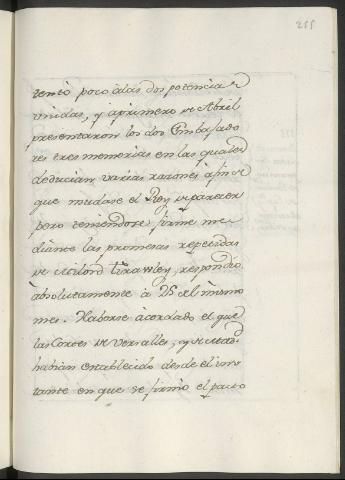 255
tentò poco àlas dos potencias
vnidas, y àprimero de Abril
presentaron los dos Embaxado
res tres memorias en las quales
deducian varias razones àfin de
que mudase el Rey de parecer
pero teniendose firme me-
diante las promesas repetidas
de Milord Tirawley, respondio
àbsolutamente à 25 del mismo
mes. Haberse àcordado el que
las Cortes de Versalles, y de Mad.d
habian establecido desde el ins-
tante en que se firmò el pacto